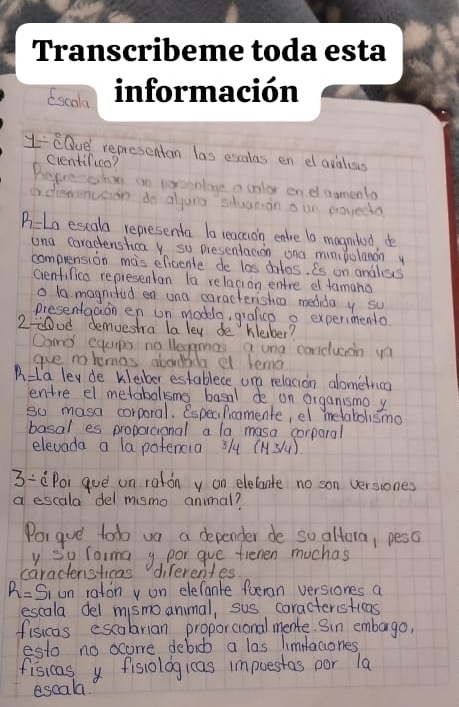 Transcribeme toda esta
información
Escala
1-¿Qué representan las escalas en el análisis
científico?
Representan un porcentaje o valor en el aumento
o disminución de alguna situación o un proyecto
R=La escala representa la reacción entre la magnitud, de
una característica y su presentación una manipulación y
comprensión más eficiente de los datos. Es un análisis
científico representan la relación entre el tamaño
o la magnitud en una característica medida y su
presentación en un modelo, gráfico o experimento.
2-¿Qué demuestra la ley de Kleiber?
Como equipo no llegamos a una conclución ya
que no hemos abordado el tema
R=La ley de Kleiber establece una relación alométrica
entre el metabolismo basal de un organismo y
su masa corporal. Específicamente, el metabolismo
basal es proporcional a la masa corporal
elevada a la potencia 3/4 (M 3/4).
3-¿Por qué un ratón y un elefante no son versiones
a escala del mismo animal?
Por que todo va a depender de su altura, peso
y su forma y por que tienen muchas
características diferentes
R=Si un ratón y un elefante fueran versiones a
escala del mismo animal, sus características
físicas escalarían proporcionalmente. Sin embargo,
esto no ocurre debido a las limitaciones
físicas y fisiológicas impuestas por la
escala.